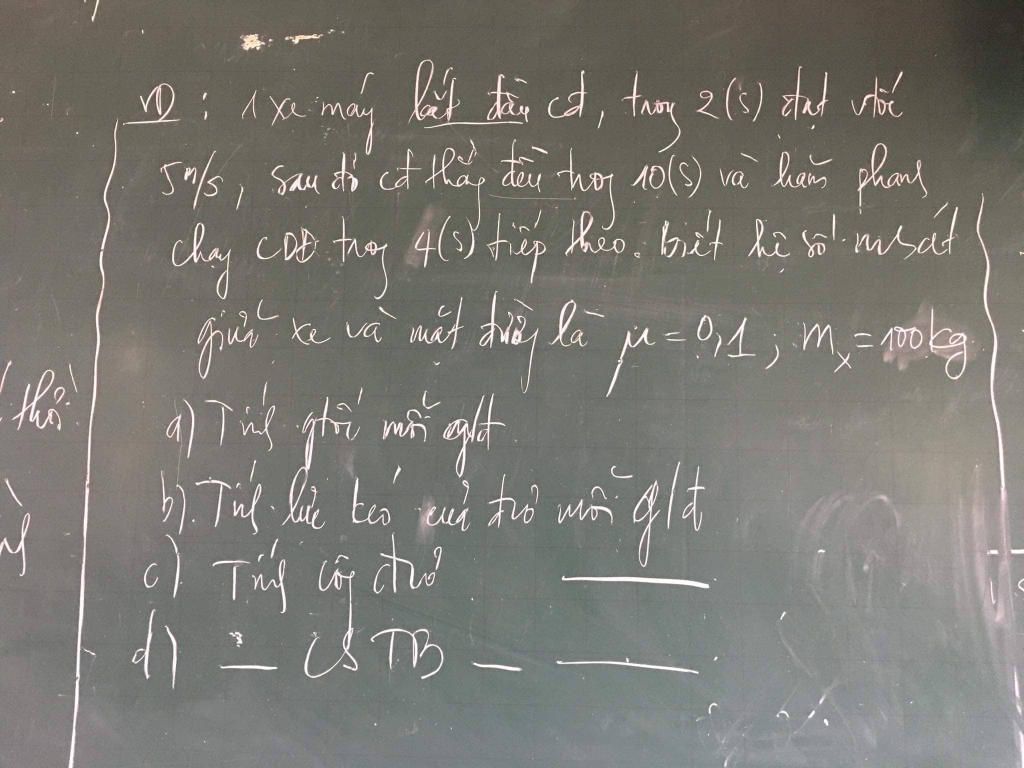 VD : 1 xe máy bắt đầu cđ, trog 2(s) đạt vtốc
5m/s, sau đó cđ thẳg đều trog 10(s) và hãm phanh
chạy CDĐ trog 4(s) tiếp theo. Biết hệ số msát
giữa xe và mặt đườg là μ = 0,1 ; mx = 100kg
a) Tính gtốc mỗi gđ
b). Tính lực kéo của đcơ mỗi g/đ
c). Tính côg đcơ
d) — CS TB —
thời